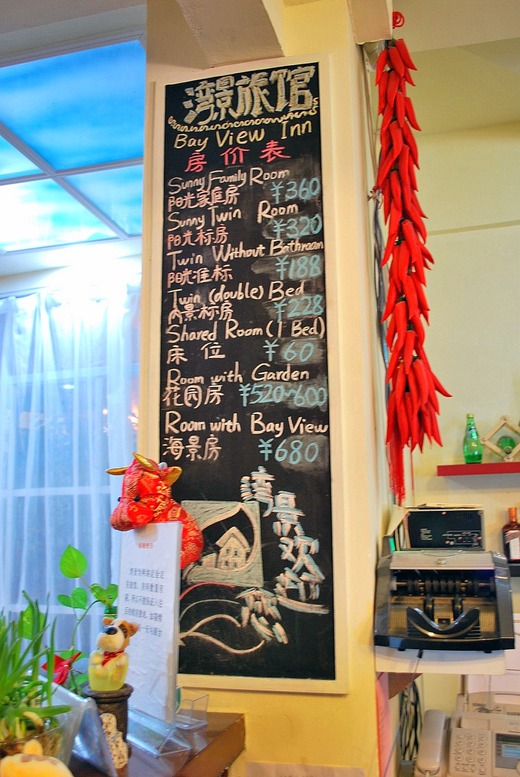 湾景旅馆
Bay View Inn
房价表
Sunny Family Room
阳光家庭房 ¥360
Sunny Twin Room
阳光标房 ¥320
Twin Without Bathroom
阳光准标 ¥188
Twin (double) Bed
内景标房 ¥228
Shared Room (1 Bed)
床位 ¥60
Room with Garden
花园房 ¥520~600
Room with Bay View
海景房 ¥680
湾景欢迎
您